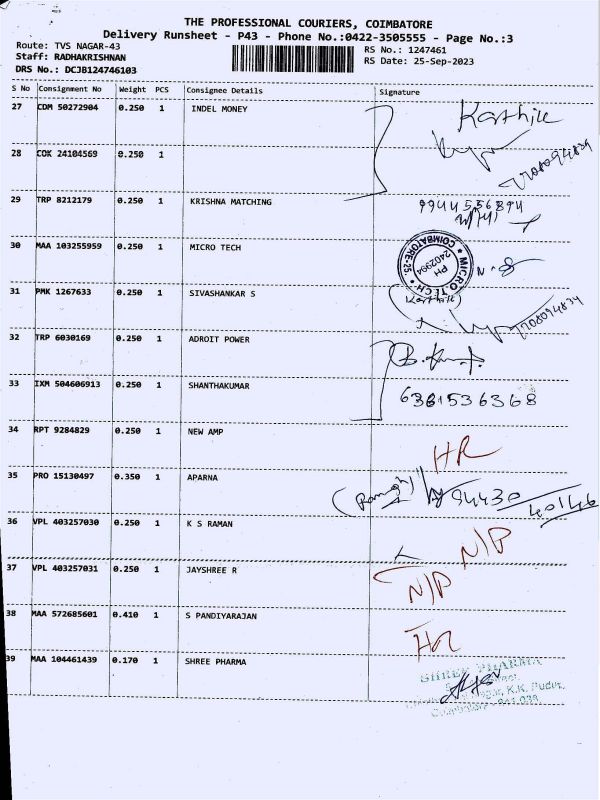 THE PROFESSIONAL COURIERS, COIMBATORE
Delivery Runsheet - P43 - Phone No.:0422-3505555 - Page No.:3
Route: TVS NAGAR-43 RS No.: 1247461
Staff: RADHAKRISHNAN RS Date: 25-Sep-2023
DRS No.: DCJB124746103
S No Consignment No Weight PCS Consignee Details Signature
27 CDM 50272904 0.250 1 INDEL MONEY
28 COK 24104569 0.250 1
7708094834
29 TRP 8212179 0.250 1 KRISHNA MATCHING 9944556894
30 MAA 103255959 0.250 1 MICRO TECH
MICRO TECH * COIMBATORE-25. * PH 2402994
31 PMK 1267633 0.250 1 SIVASHANKAR S
7708094834
32 TRP 6030169 0.250 1 ADROIT POWER
33 IXM 504606913 0.250 1 SHANTHAKUMAR 6381536368
34 RPT 9284829 0.250 1 NEW AMP
35 PRO 15130497 0.350 1 APARNA 94430 40146
36 VPL 403257030 0.250 1 K S RAMAN N/P
37 VPL 403257031 0.250 1 JAYSHREE R N/P
38 MAA 572685601 0.410 1 S PANDIYARAJAN
39 MAA 104461439 0.170 1 SHREE PHARMA
SHREE PHARMA
K.K. Pudur,